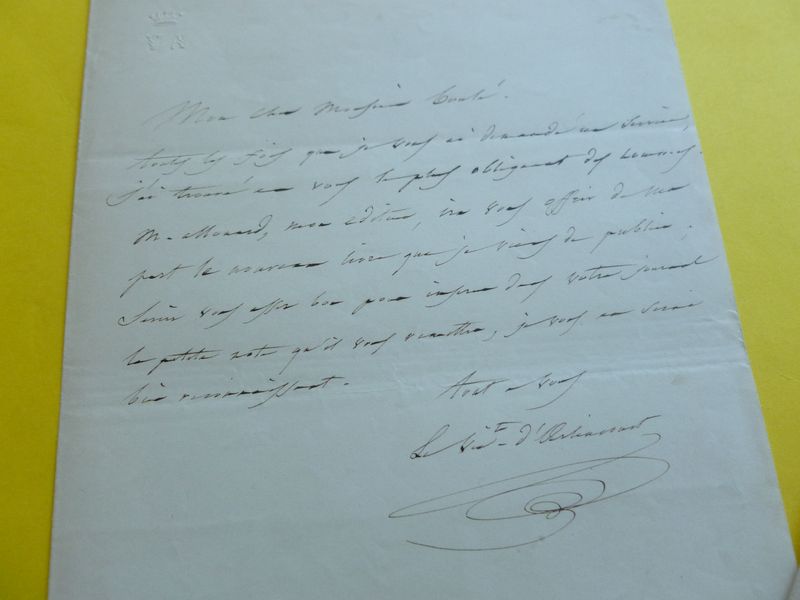 Mon cher Monsieur
toutes les fois que je vous ai demandé un service,
j'ai trouvé en vous le plus obligeant des hommes.
M. allouard, mon éditeur, ira vous offrir de ma
part le nouveau livre que je viens de publier ;
Serez vous assez bon pour insérer dans votre journal
la petite note qu'il vous remettra, je vous en serai
bien reconnaissant.
tout a vous
Le Victe d'Arlincourt